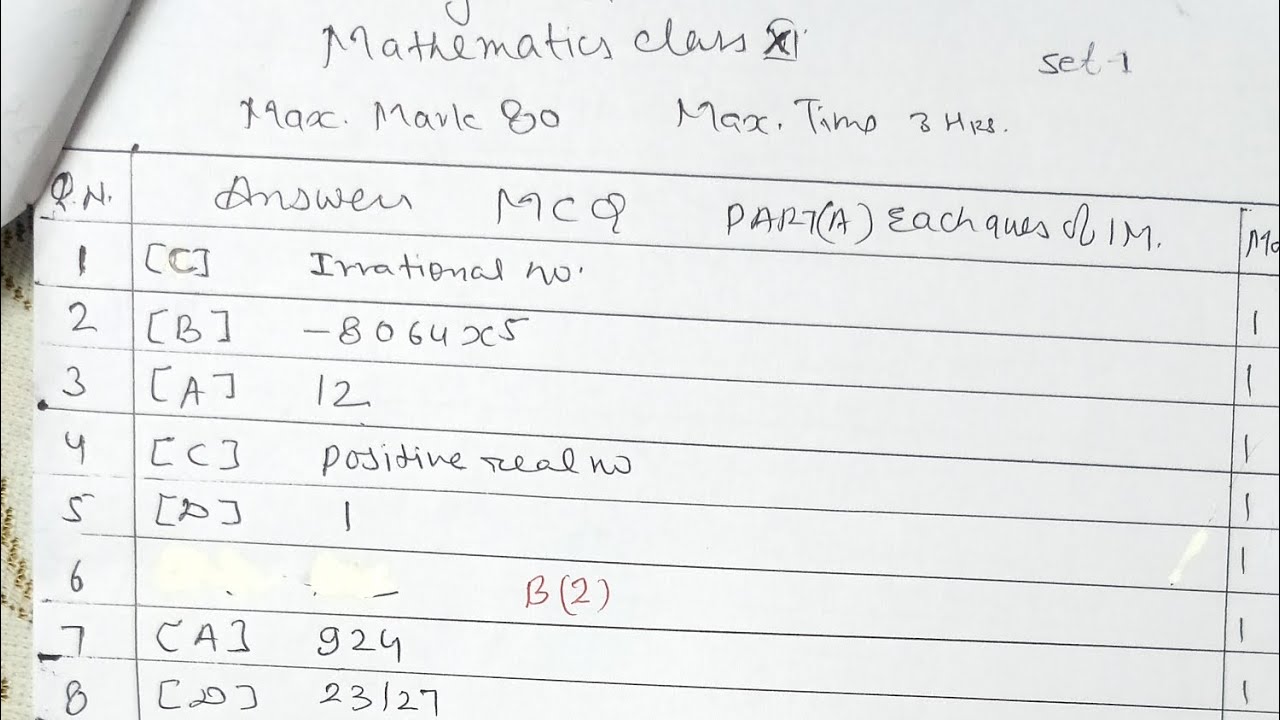 Mathematics class XI
Set-1
Max. Mark 80 Max. Time 3 Hrs.
Q.N. Answer MCQ PART(A) Each ques of 1M.
1 [C] Irrational no.
2 [B] -8064x5 1
3 [A] 12 1
4 [C] Positive real no 1
5 [D] 1 1
6 B(2) 1
7 [A] 924 1
8 [D] 23/27 1